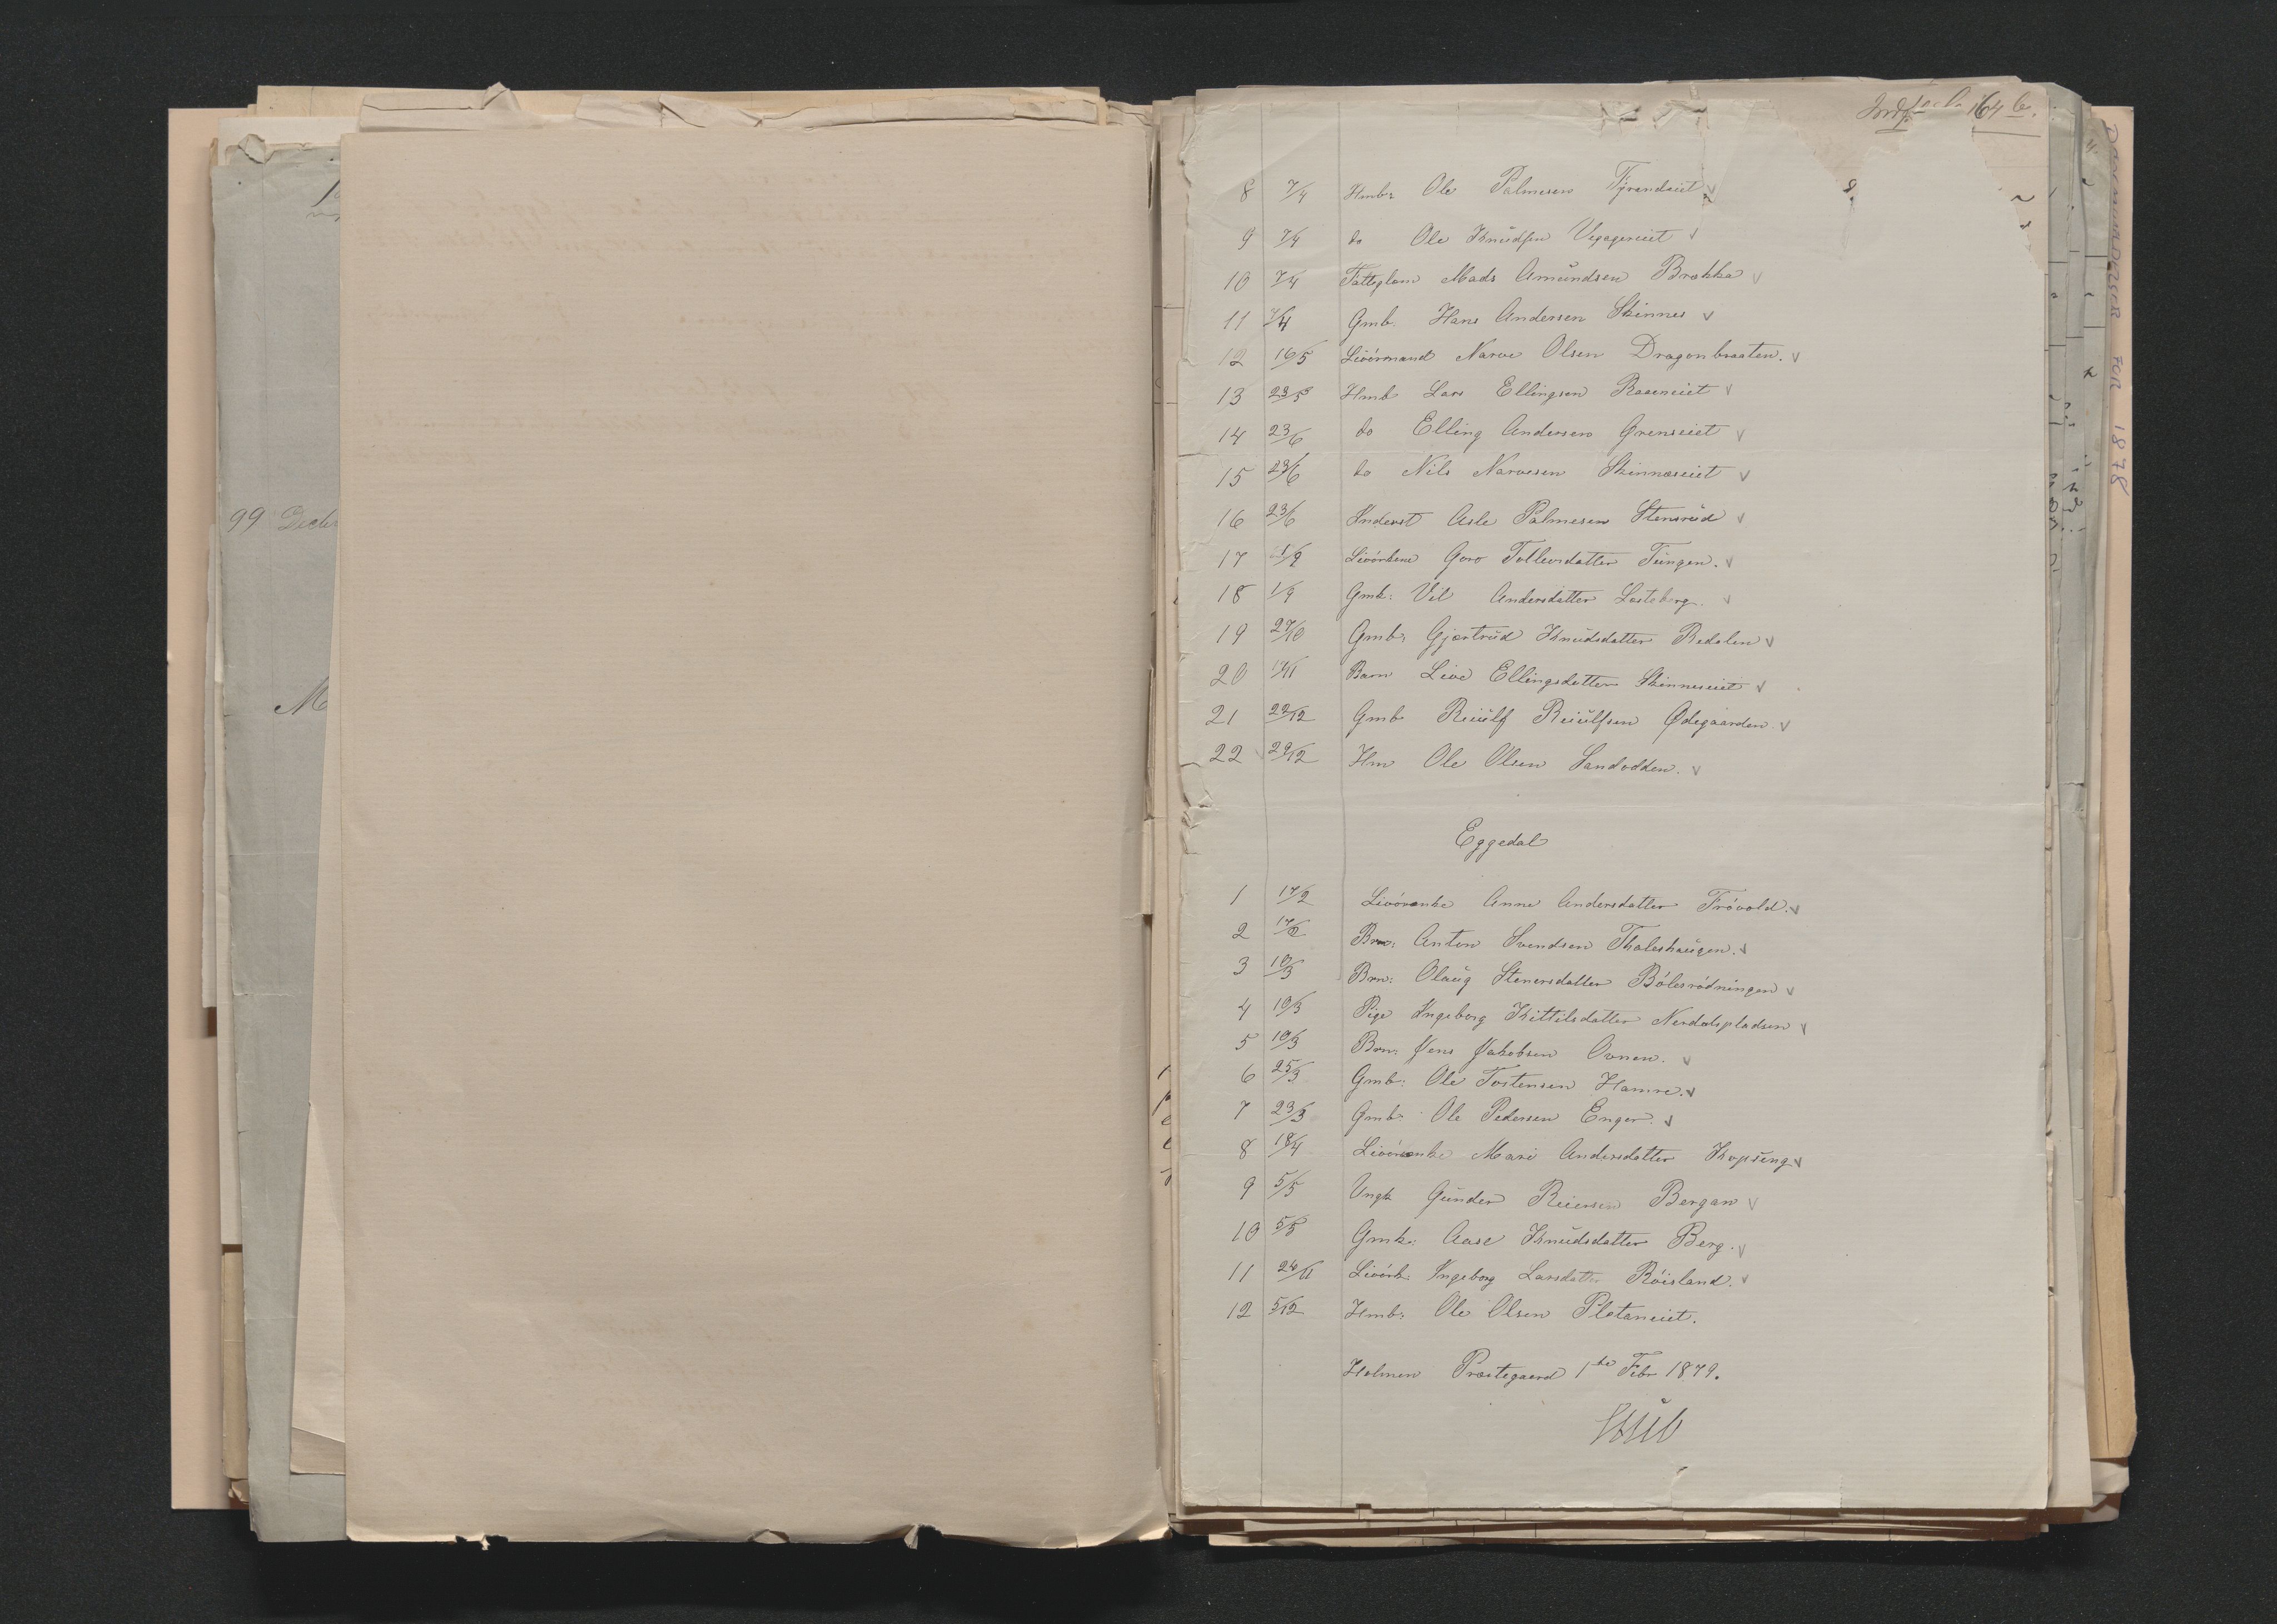 164 b.
8 7/4 Hmb: Ole Palmesen Tyrendeiet
9 7/4 do Ole Knudsen
10 7/4 Fattiglem Mads Amundsen Brekka
11 7/4 Gmb. Hans Andersen Skinnes
12 16/5 Livörmand Narve Olsen Dragonbraaten.
13 23/5 Hmb Lars Ellingsen Raaeneiet
14 23/6 do Elling Andersen Grenseiet
15 23/6 do Nils Narvesen Skinneseiet
16 23/6 Inderst Asle Palmesen Stensrud
17 1/9 Goro Tollevsdatter Tungen.
18 1/9 Gmk: Vil Andersdatter Lasteberg.
19 27/10 Gmb: Gjertrud Knudsdatter Redalen
20 Barn Live Ellingsdatter Skinneseiet
21 22/12 Gmb Reiulf Reiulfsen Ødegaarden
22 29/12 Hm Ole Olsen Sandodden.
Eggedal
1 17/2 Livörenke Anne Andersdatter Frövold.
2 17/2 Brn: Anton Svendsen Tholeshaugen.
3 10/3 Brn: Olaug Stenersdatter Bölesrödningen
4 10/3 Pige Ingeborg Kittilsdatter Nerdalspladsen
5 10/3 Brn: Jens Jakobsen Ovnen.
6 25/3 Gmb: Ole Tostensen Hamre.
7 23/3 Gmb: Ole Pedersen Enger.
8 18/4 Livörenke Mari Andersdatter Kopseng
9 5/5 Ungk Gunder Reiersen Bergan
10 5/5 Gmk: Aase Knudsdatter Berg.
11 24/11 Livörk Ingeborg Larsdatter Röisland.
12 5/12 Hmb: Ole Olsen Plataneiet.
Holmen Præstegaard 1ste Febr 1879.
99
M
FOR 1878